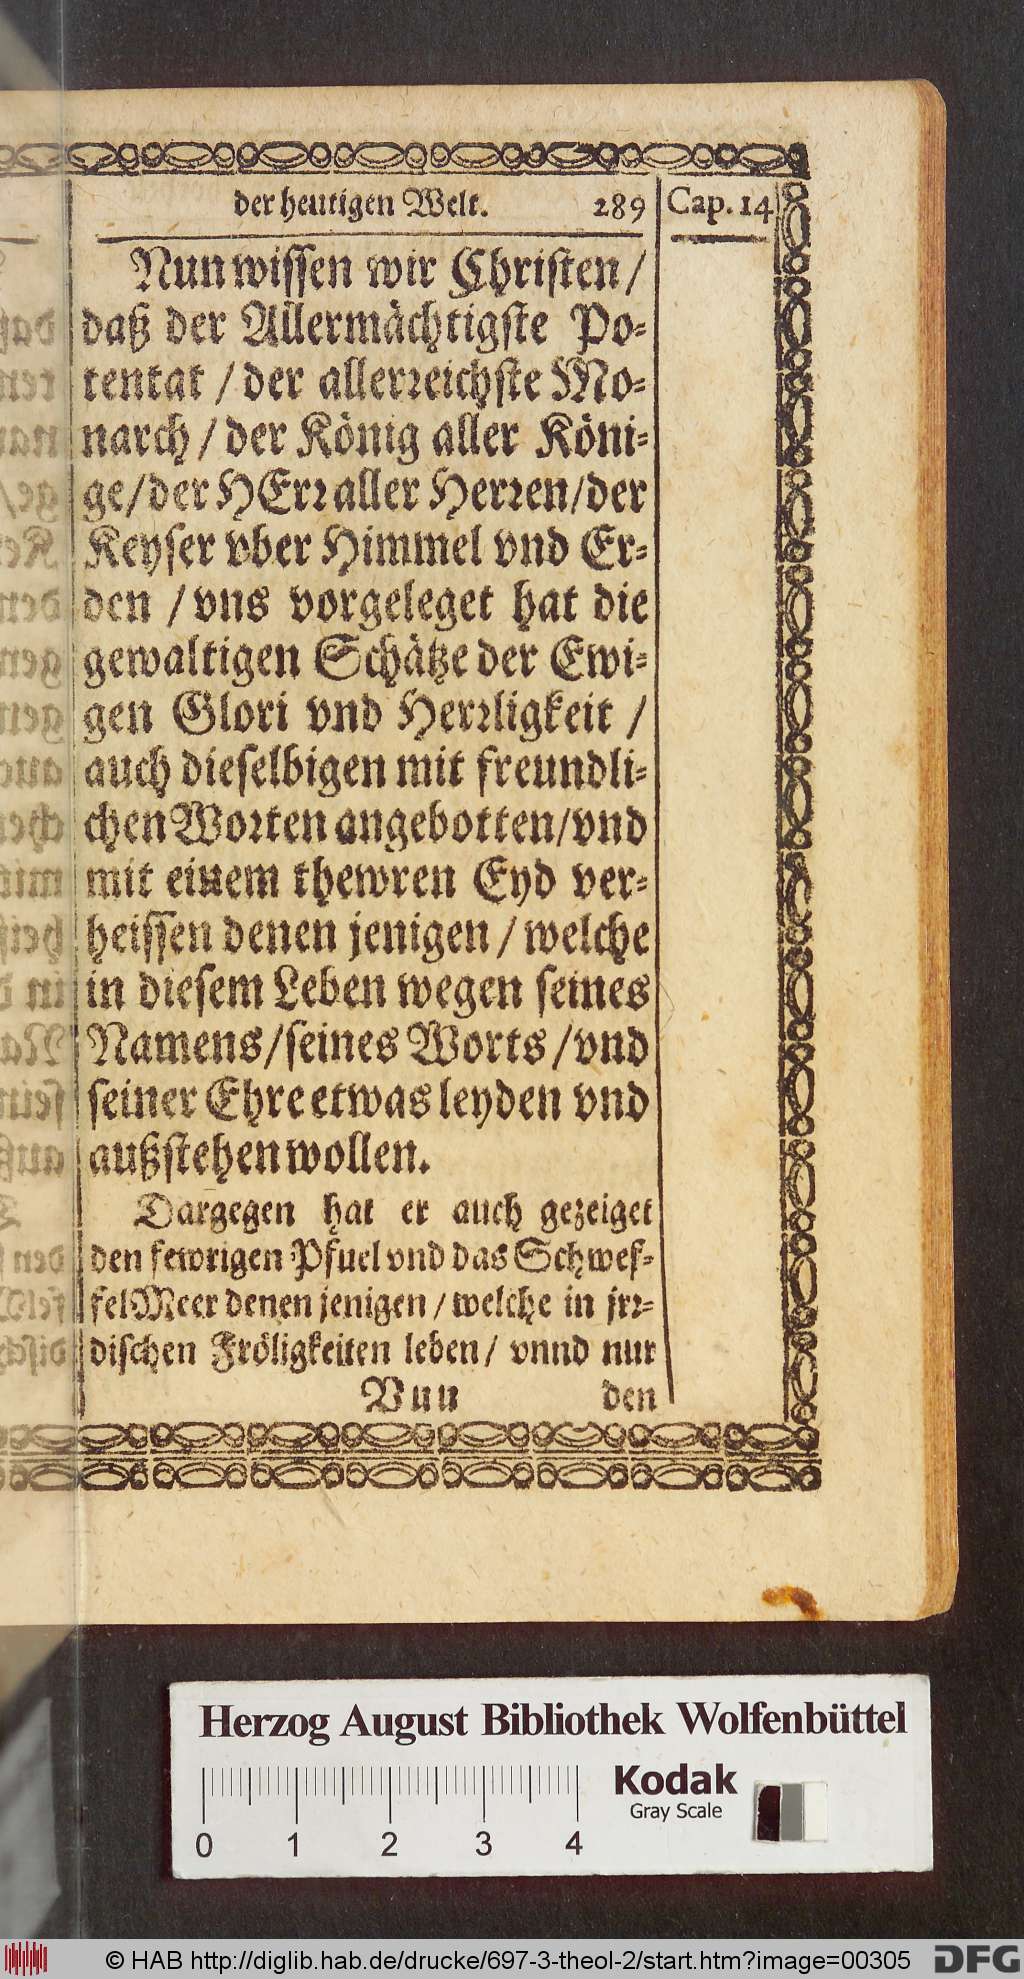 der heutigen Welt. 289 Cap. 14
Nun wissen wir Christen /
daß der Allermächtigste Po-
tentat / der allerreichste Mo-
narch / der König aller Köni-
ge / der HErr aller Herren / der
Keyser vber Himmel vnd Er-
den / vns vorgeleget hat die
gewaltigen Schätze der Ewi-
gen Glori vnd Herrligkeit /
auch dieselbigen mit freundli-
chen Worten angebotten / vnd
mit einem thewren Eyd ver-
heissen denen jenigen / welche
in diesem Leben wegen seines
Namens / seines Worts / vnd
seiner Ehre etwas leyden vnd
außstehen wollen.
Dargegen hat er auch gezeiget
den fewrigen Pfuel vnd das Schwef-
fel Meer denen jenigen / welche in jrr-
dischen Fröligkeiten leben / vnnd nur
Vuu den
Herzog August Bibliothek Wolfenbüttel
Kodak
Gray Scale
0 1 2 3 4
© HAB http://diglib.hab.de/drucke/697-3-theol-2/start.htm?image=00305 DFG